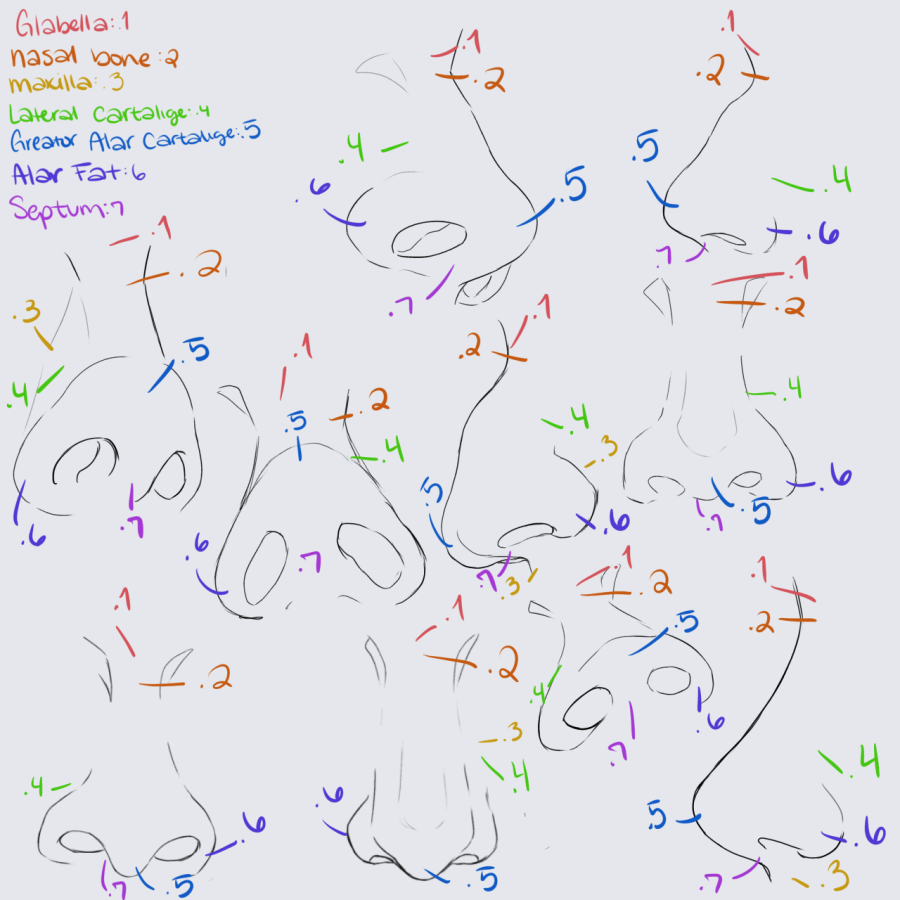 Glabella:.1
nasal bone:2
maxilla:.3
Lateral Cartalige:.4
Greator Alar Cartalige:.5
Alar Fat:6
Septum:7
.1
.2
.4
.6
.5
.7
.1
.2
.5
.4
.6
.7
.1
.2
.3
.5
.4
.7
.6
.1
.2
.5
.4
.6
.7
.1
.2
.4
.3
.5
.6
.7
.3
.1
.2
.4
.6
.5
.7
.1
.2
.4
.6
.7
.5
.1
.2
.3
.4
.6
.5
.1
.2
.5
.4
.6
.7
.1
.2
.4
.5
.6
.7
.3